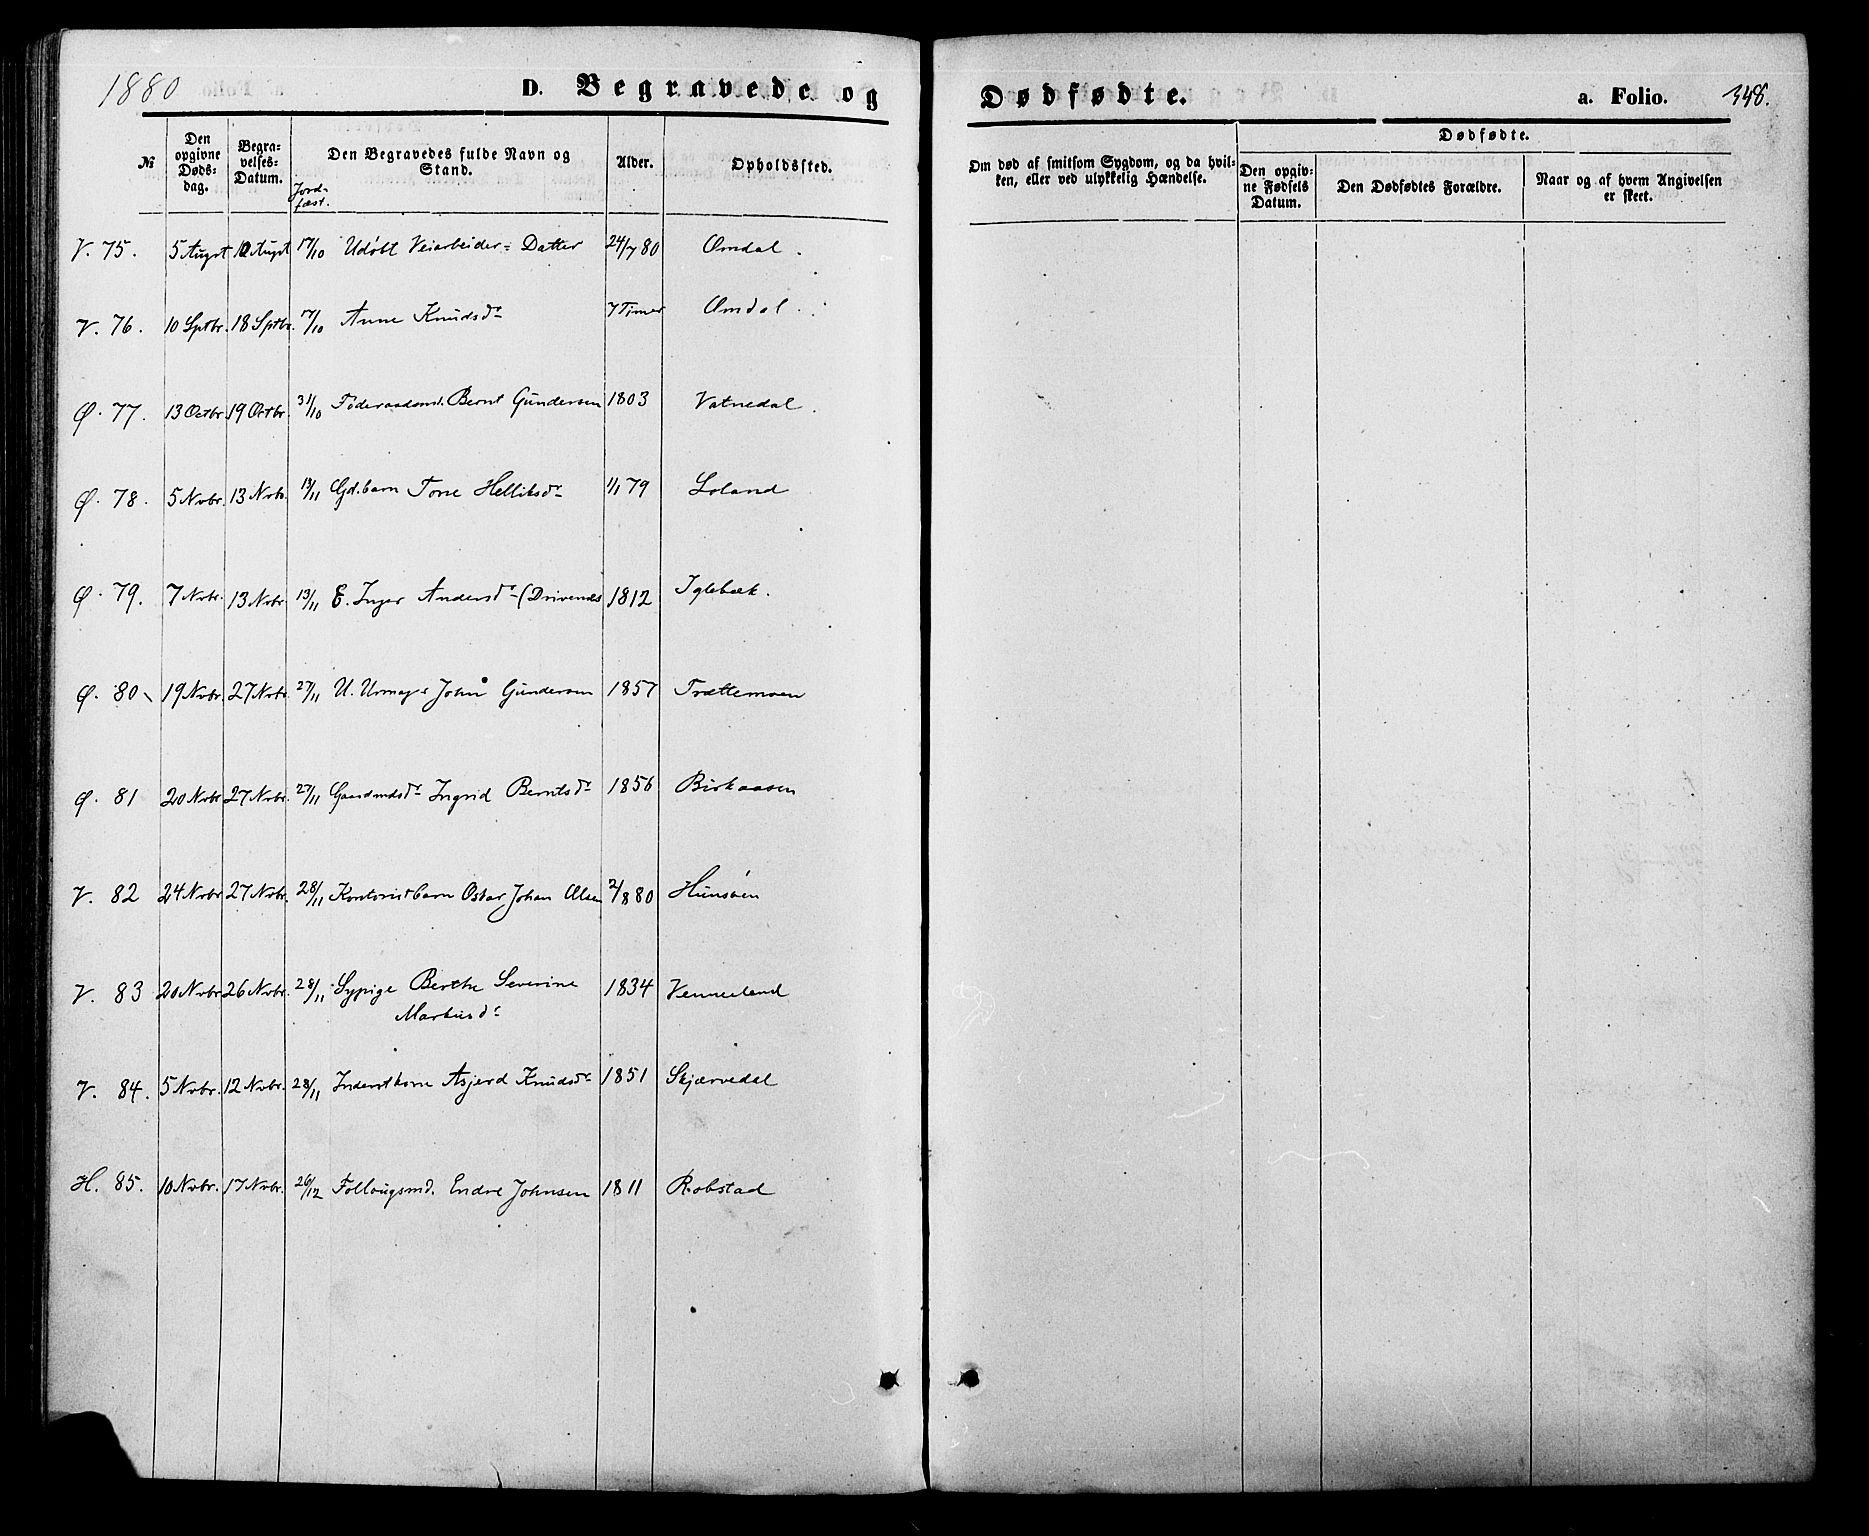 1880
D. Begravede og
Dødfødte.
a. Folio.
348.
№
Den opgivne Døds-dag.
Begra-velses-Datum.
Jord-fæst.
Den Begravedes fulde Navn og Stand.
Alder.
Opholdssted.
Om død af smitsom Sygdom, og da hvil-ken, eller ved ulykkelig Hændelse.
Dødfødte.
Den opgiv-ne Fødsels Datum.
Den Dødfødtes Forældre.
Naar og af hvem Angivelsen er skeet.
V. 75. 5 Augst 10 Augst 17/10 Udøbt Veiarbeider- Datter 24/7 80 Omdal.
V. 76. 10 Sptbr. 18 Sptbr. 17/10 Anne Knudsdr 7 Timer Omdal.
Ø. 77. 13 Octbr. 19 Octbr. 31/10 Føderaadsmd. Bernt Gundersen 1803 Vatnedal.
Ø. 78. 5 Nvbr. 13 Nvb. 13/11 Gd.barn Tone Helliksdr 1/1 79 Loland
Ø. 79. 7 Nvbr. 13 Nvbr 13/11 E. Inger Andersdr (Drivends 1812 Iglebæk.
Ø. 80 19 Nvbr. 27 Nvbr. 27/11 U. Urmag. John Gundersen 1857 Trættemoen
Ø. 81 20 Nvbr 27 Nvbr. 27/11 Gaardmdsdr Ingrid Berntsdr 1856 Birkaasen
V. 82 24 Nvbr 27 Nvbr. 28/11 Kontoristbarn Oskar Johan Olsen 2/8 80 Hunsøen
V. 83 20 Nvbr 26 Nvbr. 28/11 Sypige Berthe Severine 1834 Venneland
Markusdr
V. 84. 5 Nvbr. 12 Nvbr. 28/11 Inderstkone Asjerd Knudsdr 1851 Skjærvedal
H. 85. 10 Nvbr. 17 Nvbr. 26/12 Follougsmd. Endre Johnsen 1811 Robstad